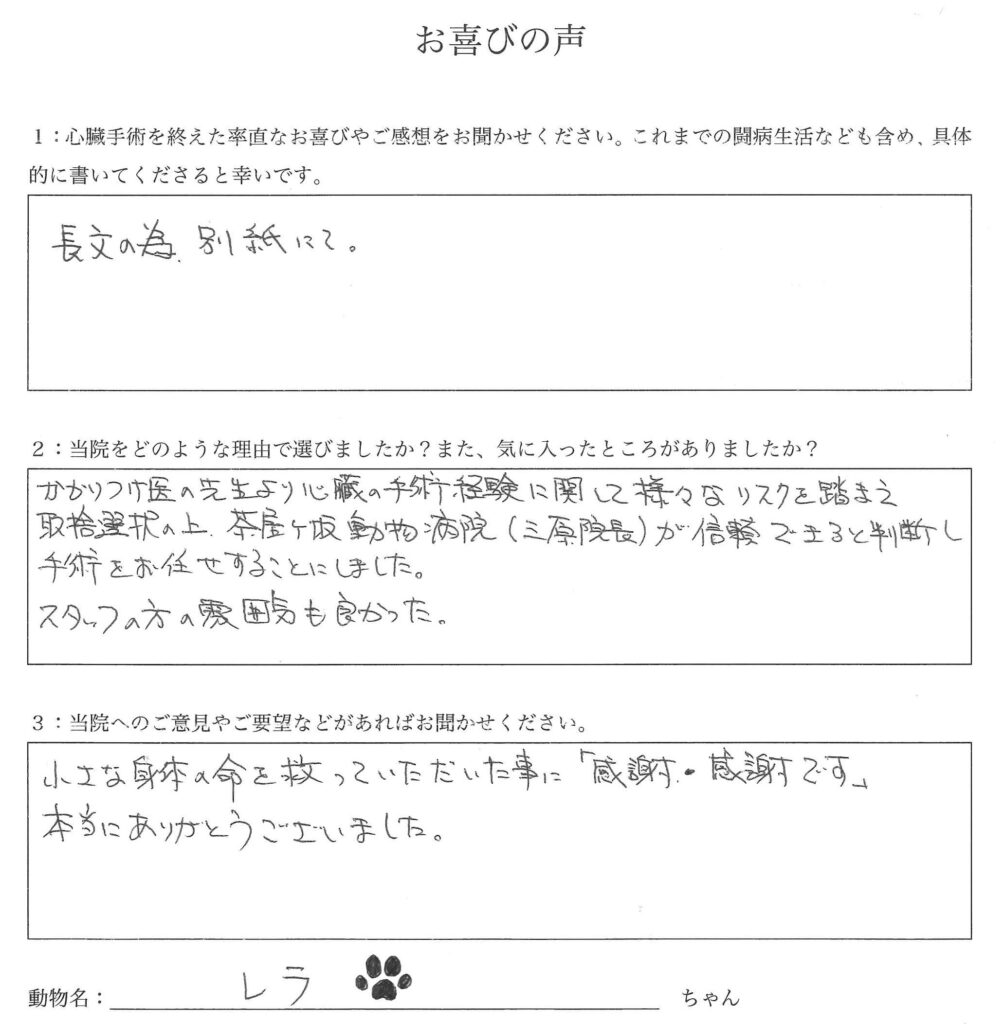 お喜びの声
１：心臓手術を終えた率直なお喜びやご感想をお聞かせください。これまでの闘病生活なども含め、具体
的に書いてくださると幸いです。
長文の為、別紙にて。
２：当院をどのような理由で選びましたか？また、気に入ったところがありましたか？
かかりつけ医の先生より心臓の手術経験に関して様々なリスクを踏まえ
取捨選択の上、茶屋ヶ坂動物病院（三原院長）が信頼できると判断し
手術をお任せすることにしました。
スタッフの方の雰囲気も良かった。
３：当院へのご意見やご要望などがあればお聞かせください。
小さな身体の命を救っていただいた事に「感謝・感謝です」
本当にありがとうございました。
動物名：レラ ちゃん